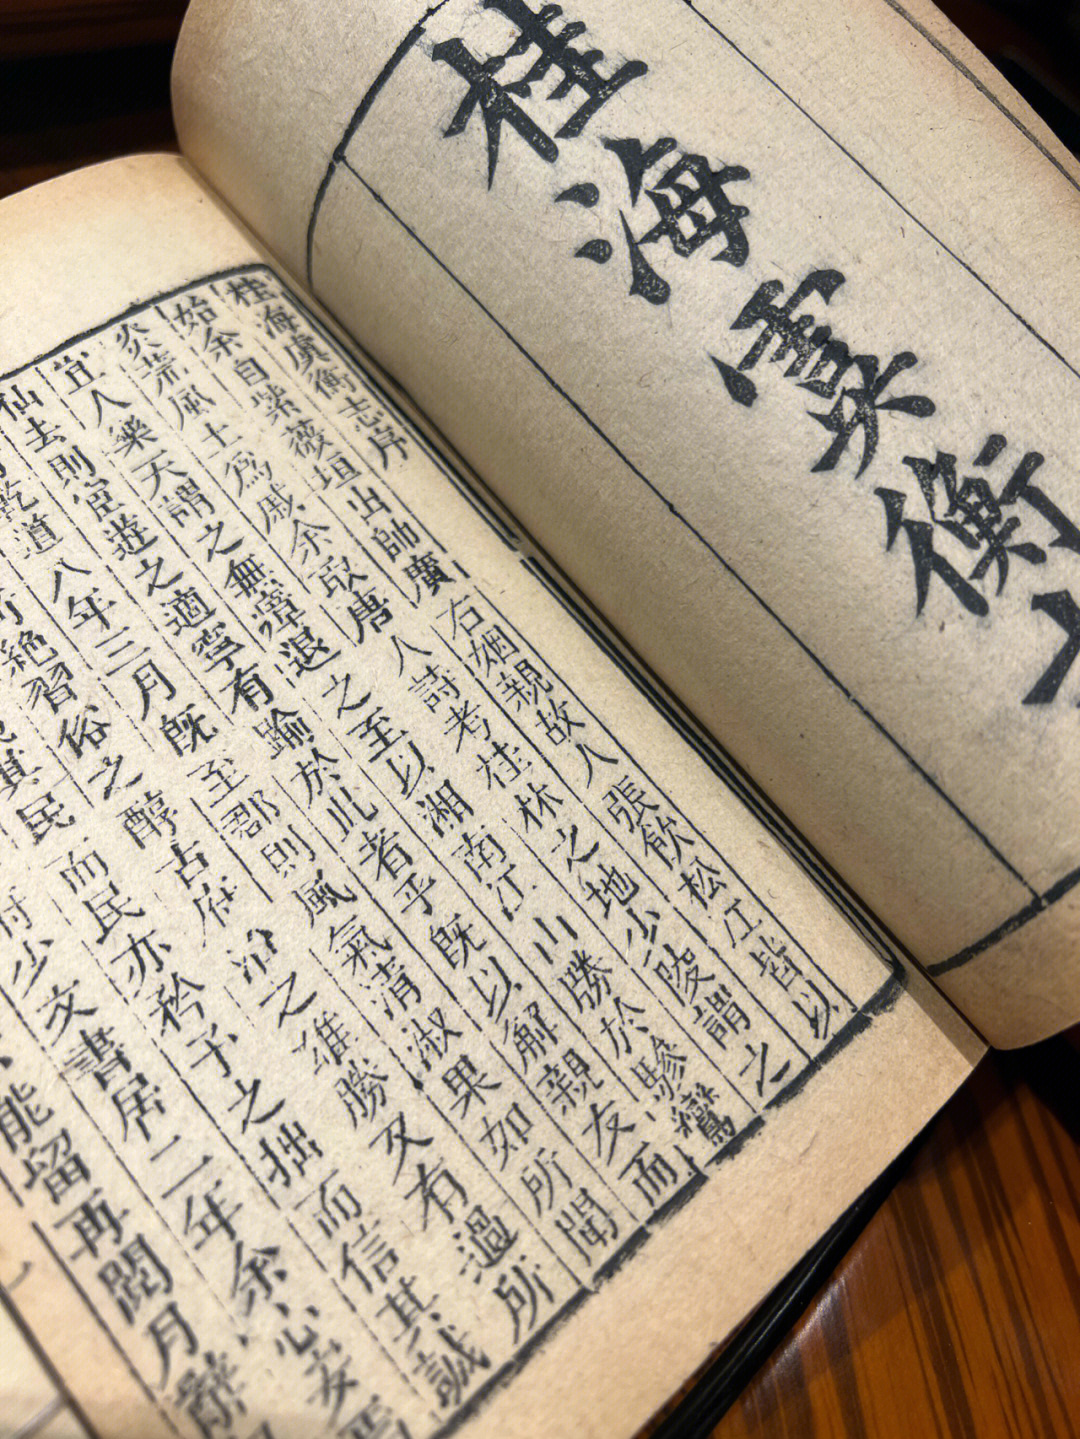 桂海虞衡
桂海虞衡志序
始余自紫薇垣出帥廣右姻親故人張飲松江皆以
炎荒風土爲戚余取唐人詩考桂林之地少陵謂之
宜人樂天謂之無瘴退之至以湘南江山勝於驂鸞
仙去則宦遊之適寧有踰於此者乎旣以解親友而
乾道八年三月旣至郡則風氣清淑果如所聞
絕習俗之醇古府治之雄勝又有過所
其民而民亦矜予之拙而信其誠
少文書居二年余心安焉
能留再閱月辭